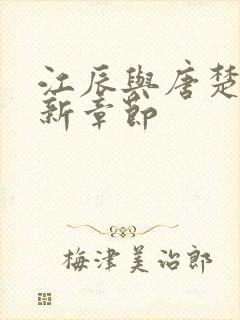 江辰與唐楚
新章節
梅津美治郎